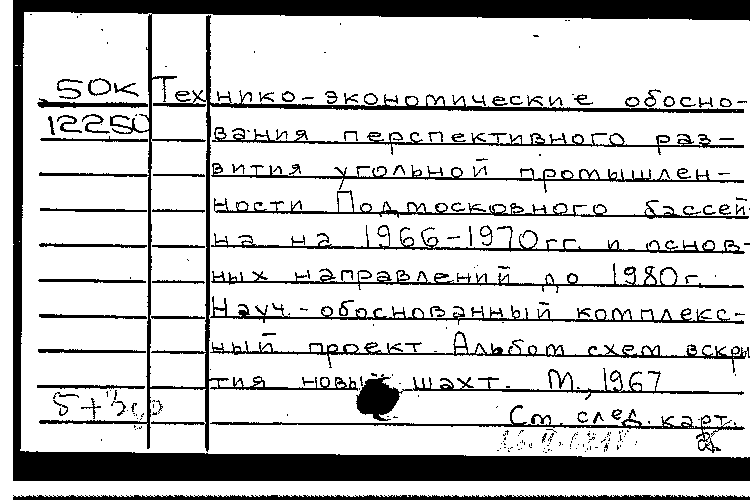 50к Технико-экономические обосно-
12250 вания перспективного раз-
вития угольной промышлен-
ности Подмосковного бассей-
на на 1966-1970гг. и основ-
ных направлений до 1980г.
Науч.-обоснованный комплекс-
ный проект. Альбом схем вскры
тия новых шахт. М., 1967
См. след. карт.